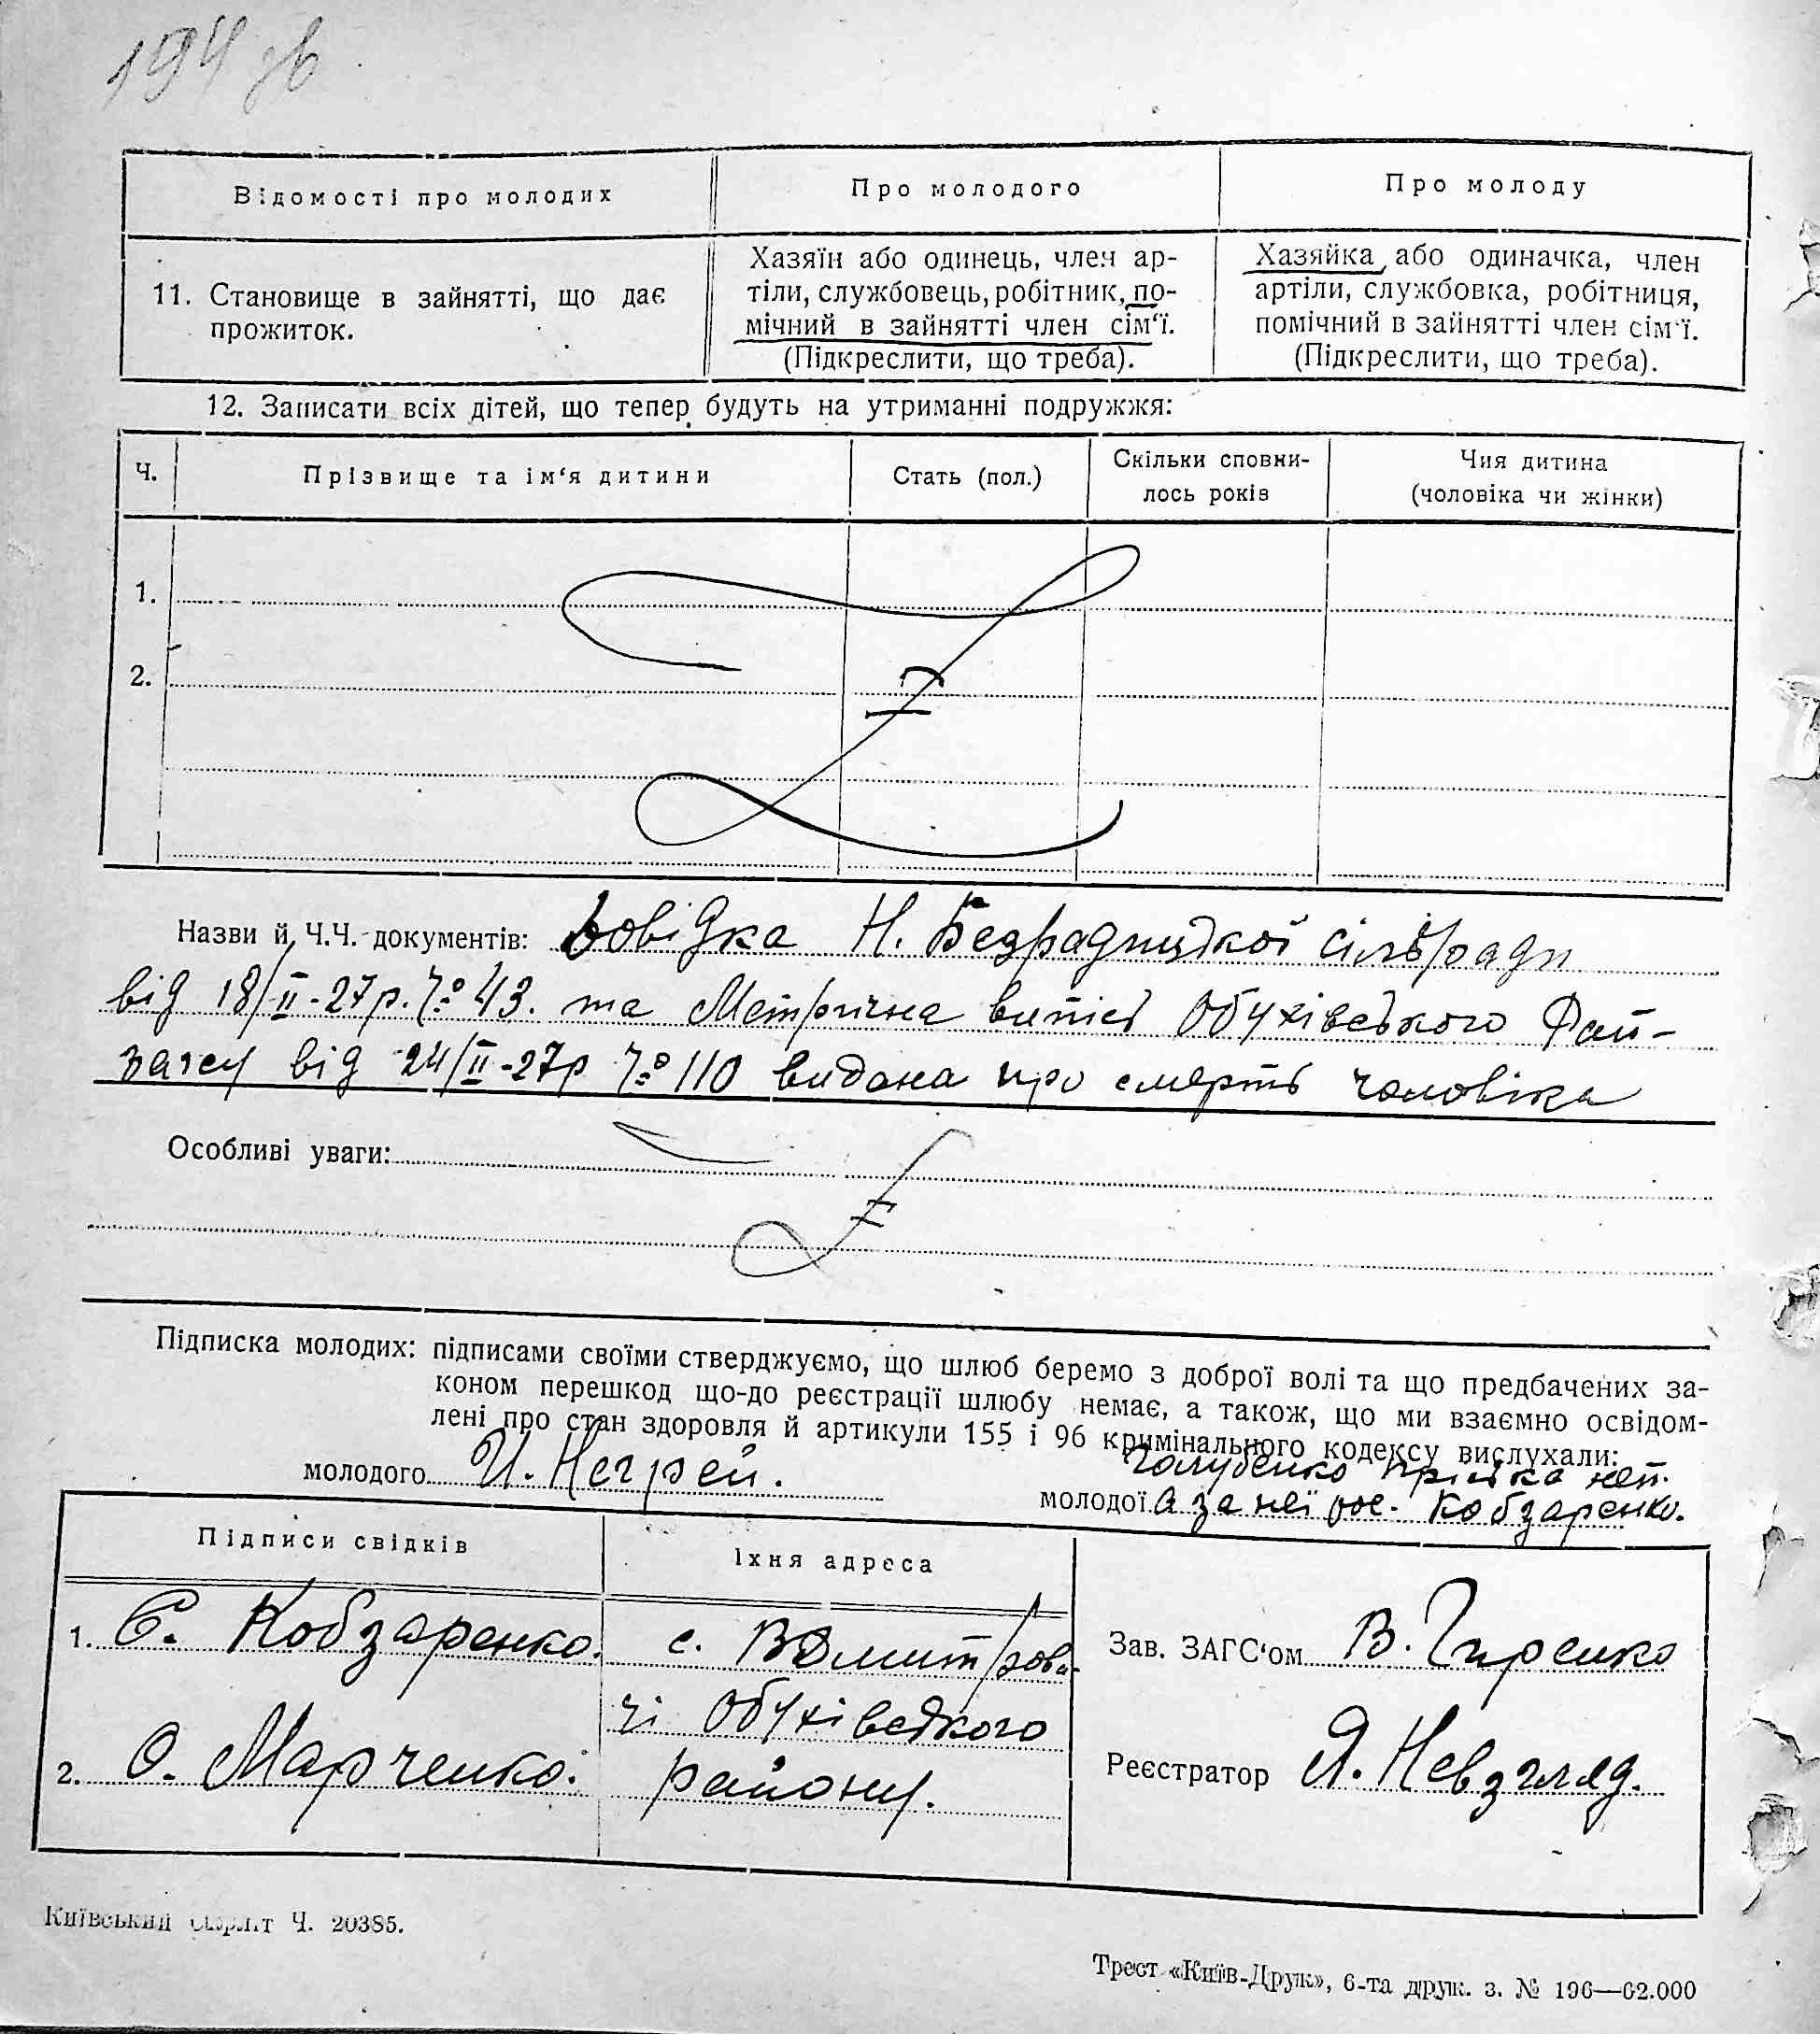 194 зв
Відомості про молодих
Про молодого
Про молоду
11. Становище в зайнятті, що дає
прожиток.
Хазяїн або одинець, член ар-
тіли, службовець, робітник, по-
мічний в зайнятті член сім‘ї.
(Підкреслити, що треба).
Хазяйка, або одиначка, член
артіли, службовка, робітниця,
помічний в зайнятті член сім‘ї.
(Підкреслити, що треба).
12. Записати всіх дітей, що тепер будуть на утриманні подружжя:
Ч.
Прізвище та ім‘я дитини
Стать (пол.)
Скільки сповни-
лось років
Чия дитина
(чоловіка чи жінки)
1.
2.
Назви й Ч.Ч. документів: Довідка Н. Безрадицької сільради
від 18/II-27р. Ч: 43. та Метрична випісь Обухівського Рай-
загсу від 24/II-27р Ч: 110 видана про смерть чоловіка
Особливі уваги:
Підписка молодих: підписами своїми стверджуємо, що шлюб беремо з доброї волі та що предбачених за-
коном перешкод що-до реєстрації шлюбу немає, а також, що ми взаємно освідом-
лені про стан здоровля й артикули 155 і 96 кримінального кодексу вислухали:
молодого И. Негрей.
Голубенко Прiська неп.
молодої а за неї рос. Кобзаренко.
Підписи свідків
Їхня адреса
1. Є. Кобзаренко.
с. ВДмитрови-
чі Обухівского
району.
2. О. Марченко.
Зав. ЗАГС‘ом В. Гиренко
Реєстратор Я. Невзгляд.
Київський Окрліт Ч. 20385.
Трест «Київ-Друк», 6-та друк. з. № 196—62.000